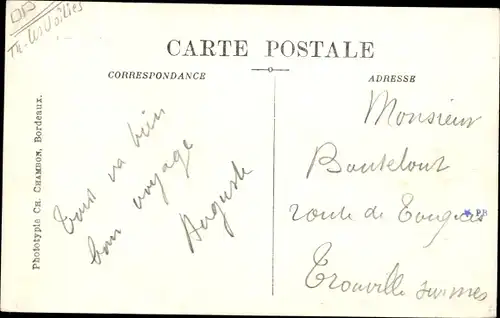 Th. les Voiliers
CARTE POSTALE
CORRESPONDANCE
ADRESSE
Tout va bien
bon voyage
Auguste
Monsieur
route de
Trouville sur mer
PB
Phototypie CH. CHAMBON, Bordeaux.